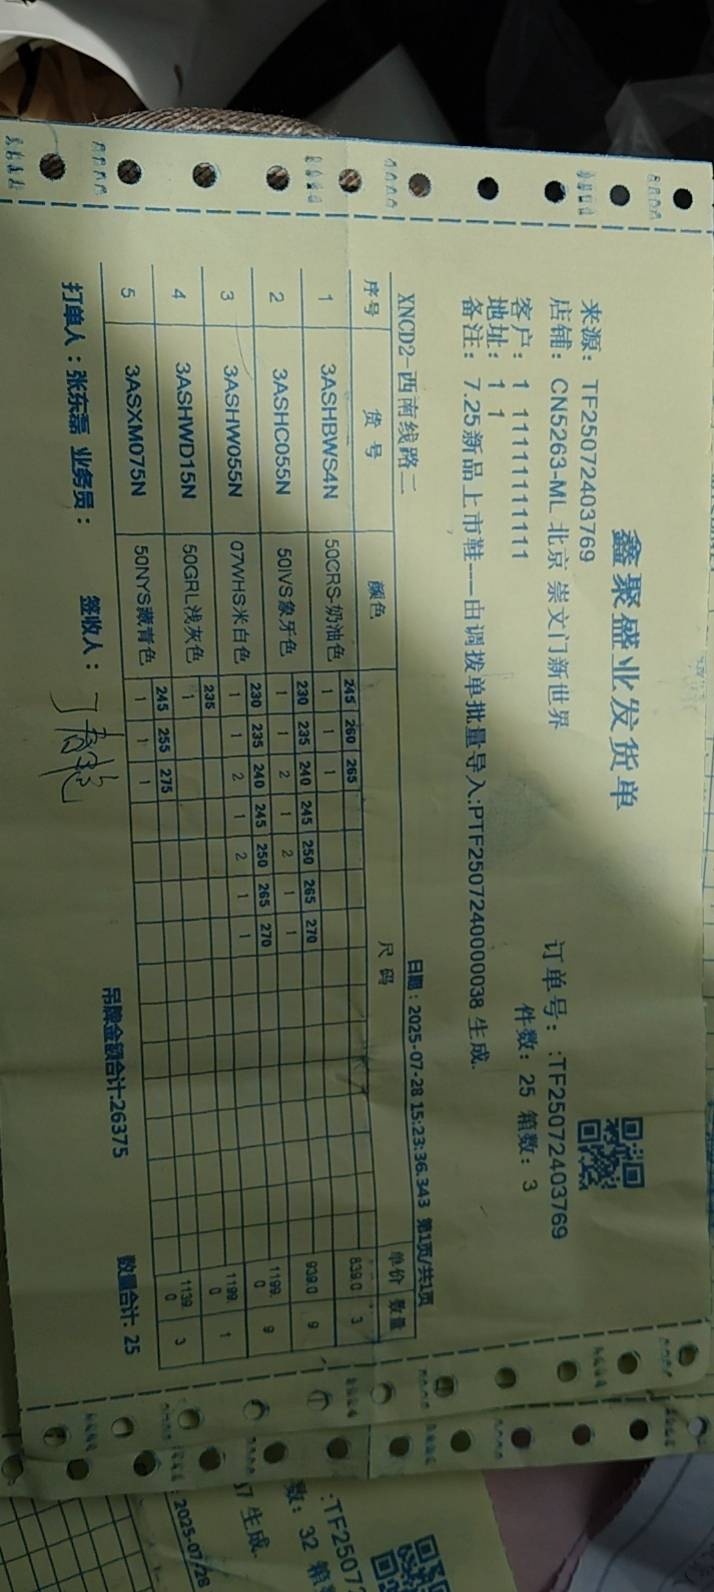 鑫聚盛业发货单
来源：TF25072403769 订单号：:TF25072403769
店铺：CN5263-ML 北京 崇文门新世界 件数：25 箱数：3
客户：1 11111111111
地址：1 1
备注：7.25新品上市鞋---由调拨单批量导入:PTF2507240000038 生成.
XNCD2-西南线路二 日期：2025-07-28 15:23:36.343 第1页/共1页
序号 货号 颜色 尺码 单价 数量
245 260 265
1 3ASHBWS4N 50CRS-奶油色 1 1 1 839.0 3
230 235 240 245 250 265 270
2 3ASHC055N 50IVS象牙色 1 1 2 1 2 1 1 939.0 9
230 235 240 245 250 265 270
3 3ASHW055N 07WHS米白色 1 1 2 1 2 1 1 1199.0 9
235
4 3ASHWD15N 50GRL浅灰色 1 1199.0 1
245 255 275
5 3ASXM075N 50NYS藏青色 1 1 1 1139.0 3
吊牌金额合计:26375 数量合计: 25
打单人：张东磊 业务员： 签收人：
:TF2507
数：32 箱
生成.
：2025-07/28